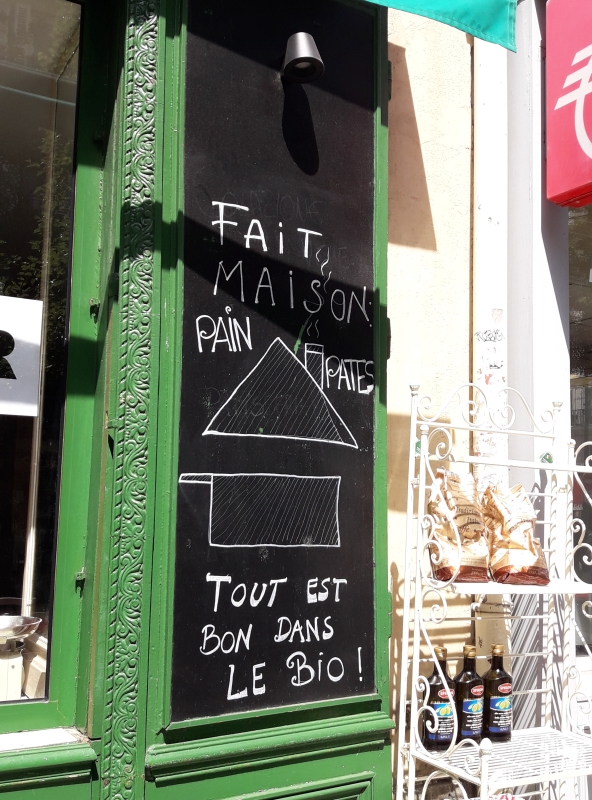 FAIT
MAISON:
PAIN
PATES
TOUT EST
BON DANS
LE BIO !
R